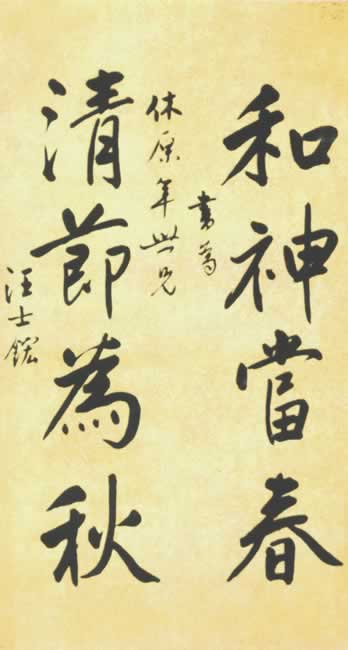 和神當春
書為
休原年世兄
清莭為秋
汪士鋐